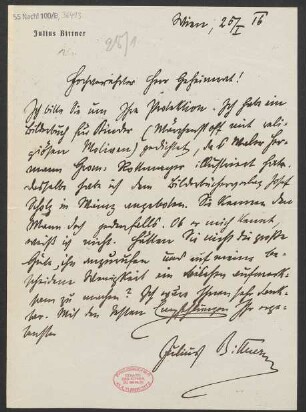 55 Nachl 100/B, 36413
Julius Bittner
Wien, 25/I 16
25/1
Hochverehrter Herr Geheimrat!
Ich bitte Sie um Ihre Protektion. Ich habe ein
Bilderbuch für Kinder (Märchenstoff mit reli-
giösen Motiven) gedichtet, das Maler Her-
mann Grom-Rottmayer illustriert hat.
Dasselbe habe ich dem Bilderbücherverlag Josef
Scholz in Mainz angeboten. Sie kennen den
Mann doch jedenfalls. Ob er mich kennt,
weiß ich nicht. Hätten Sie nicht die große
Güte, ihn anzurufen und auf meine be-
scheidene Wenigkeit ein bißchen aufmerk-
sam zu machen? Ich wäre Ihnen sehr dank-
bar. Mit den besten Empfehlungen Ihr erge-
benster
Julius Bittner